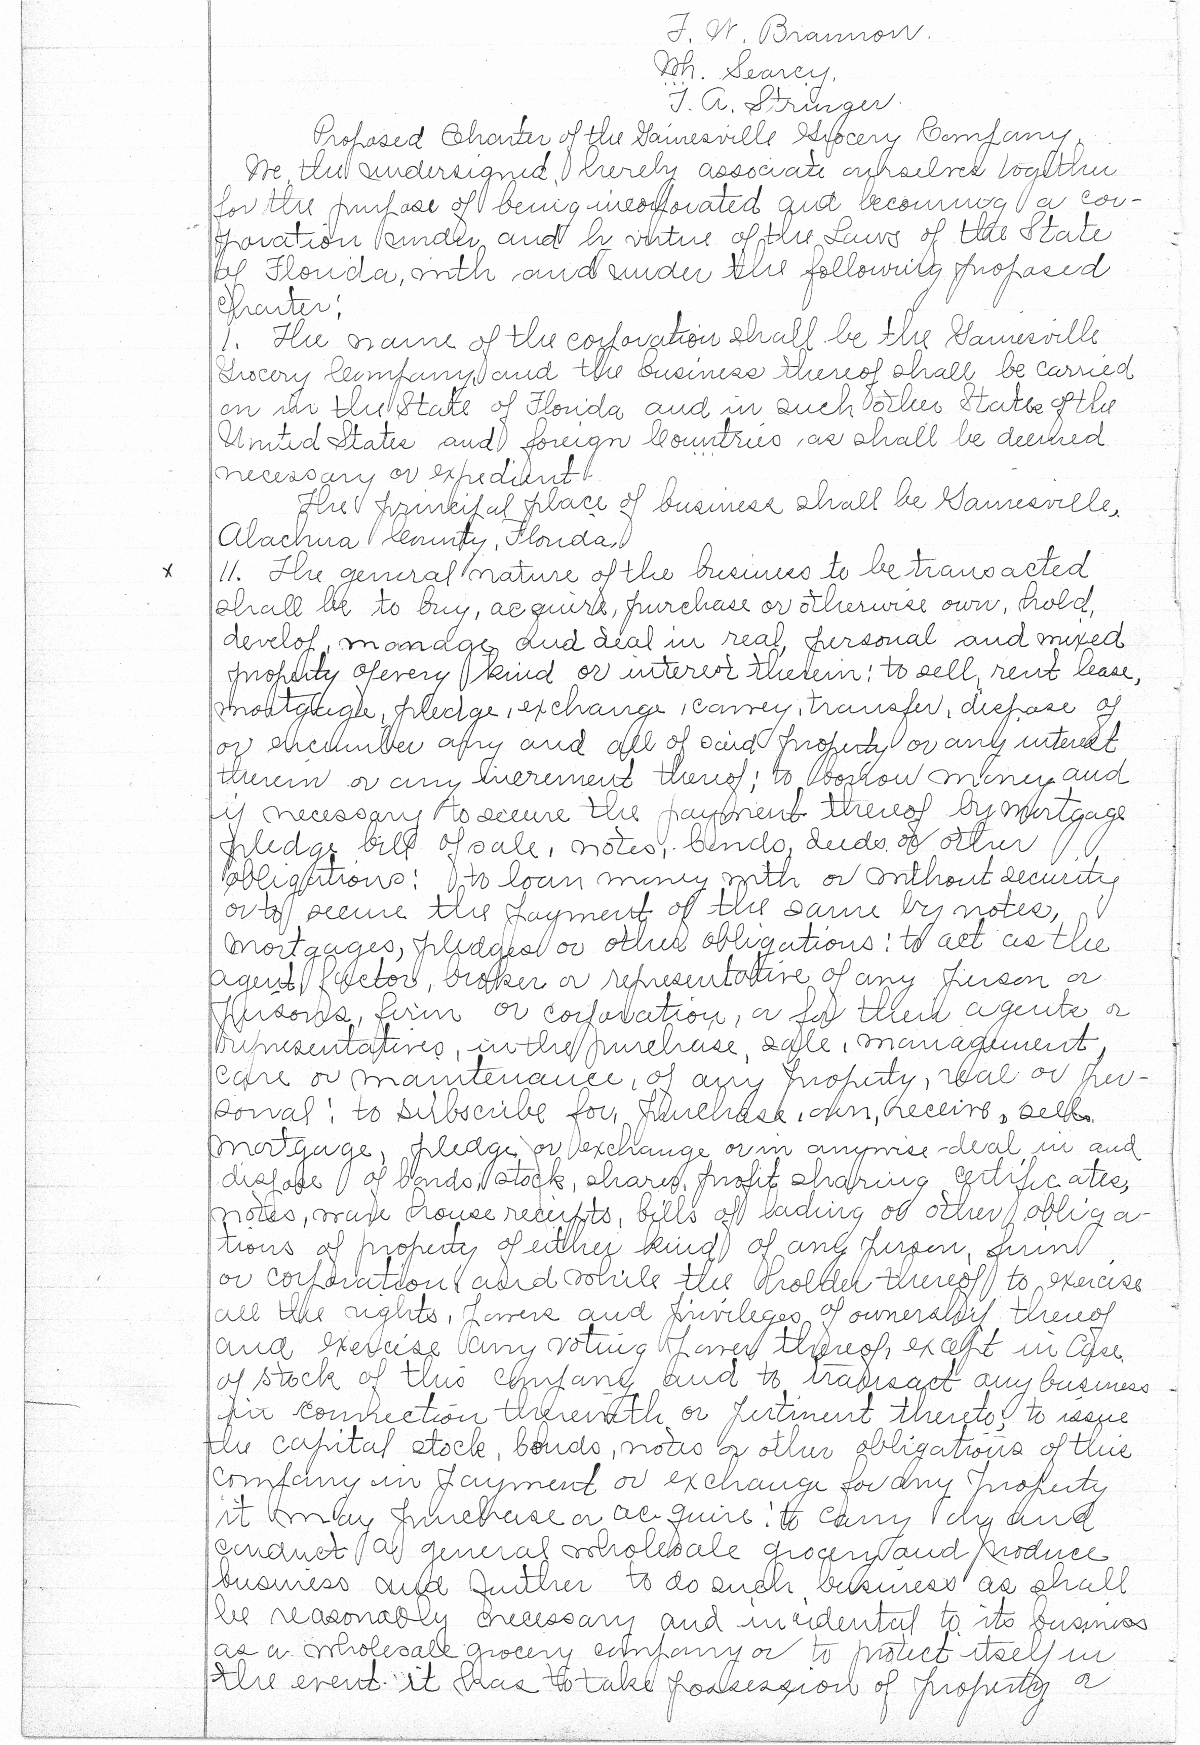 F. W. Brannon.
Wh. Searcy.
T. A. Stringer.
Proposed Charter of the Gainesville Grocery Company.
We, the undersigned, hereby associate ourselves together
for the purpose of being incorporated and becoming a cor-
poration under and by virtue of the Laws of the State
of Florida, with and under the following proposed
Charter:
1. The name of the corporation shall be the Gainesville
Grocery Company, and the business thereof shall be carried
on in the State of Florida and in such other States of the
United States and foreign Countries as shall be deemed
necessary or expedient.
The principal place of business shall be Gainesville,
Alachua County, Florida.
x 11. The general nature of the business to be transacted
shall be to buy, acquire, purchase or otherwise own, hold,
develop, manage and deal in real, personal and mixed
property of every kind or interest therein: to sell, rent lease,
mortgage, pledge, exchange, convey, transfer, dispose of
or encumber any and all of said property or any interest
therein or any increment thereof; to borrow money and
if necessary to secure the payment thereof by mortgage
pledge bill of sale, notes, bonds, deeds or other
obligations: to loan money with or without security
or to secure the payment of the same by notes,
mortgages, pledges or other obligations: to act as the
agent factor, broker or representative of any person or
persons, firm or corporation, or for their agents or
representatives, in the purchase, sale, management,
care or maintenance, of any property, real or per-
sonal: to subscribe for, purchase, own, receive, sell,
mortgage, pledge or exchange or in anywise deal in and
dispose of bonds, stock, shares, profit sharing certificates,
notes, ware house receipts, bills of lading or other obliga-
tions of property of either kind of any person, firm
or corporation, and while the holder thereof to exercise
all the rights, powers and privileges of ownership thereof
and exercise any voting power thereof, except in case
of stock of this company and to transact any business
in connection therewith or pertinent thereto; to issue
the capital stock, bonds, notes or other obligations of this
company in payment or exchange for any property
it may purchase or acquire: to carry on and
conduct a general wholesale grocery and produce
business and further to do such business as shall
be reasonably necessary and incidental to its business
as a wholesale grocery company or to protect itself in
the event it has to take possession of property or